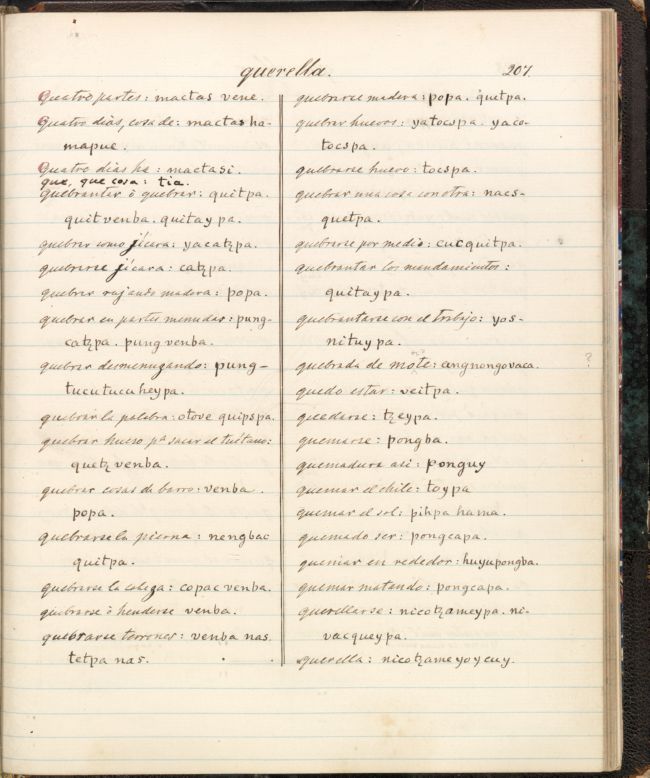 querella.
207.
Quatro partes: mactas vene.
Quatro dias, cosa de: mactas ha-
mapue.
Quatro dias ha: mactasi.
que, que cosa: tia.
quebrantar ó quebrar: quitpa.
quitvenba. quitaypa.
quebrar como jícara: yacatzpa.
quebrarse jícara: catzpa.
quebrar rajando madera: popa.
quebrar en partes menudas: pung-
catzpa. pungvenba.
quebrar desmenuzando: pung-
tucutucuheypa.
quebrar la palabra: otove quipspa.
quebrar hueso pa sacar el tuétano:
quetzvenba.
quebrar cosas de barro: venba.
popa.
quebrarse la pierna: nengbac
quitpa.
quebrarse la cabeza: copac venba.
quebrarse ó henderse venba.
quebrarse terrones: venba nas.
tetpa nas.
quebrarse madera: popa. quetpa.
quebrar huevos: yatocspa. yaco-
tocspa.
quebrarse huevo: tocspa.
quebrar una cosa con otra: nacs-
quetpa.
quebrarse por medio: cucquitpa.
quebrantar los mandamientos:
quitaypa.
quebrantarse con el trabajo: yos-
nituypa.
quebrada de mote: angnongovaca.
?
quedo estar: veitpa.
quedarse: tzeypa.
quemarse: pongba.
quemadura asi: ponguy
quemar el chile: toypa
quemar el sol: pihpa hama.
quemado ser: pongcapa.
quemar en rededor: huyupongba.
quemar matando: pongcapa.
querellarse: nicotzameypa. ni-
vacqueypa.
querella: nicotzameyoycuy.